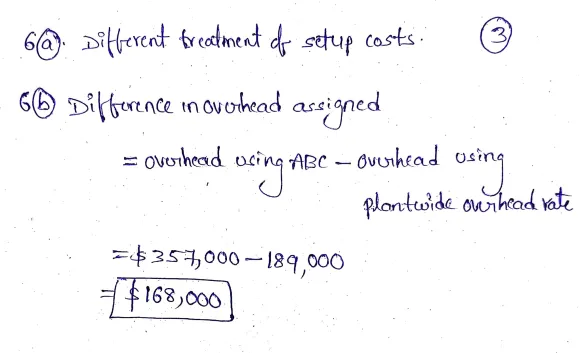 6(a). Different treatment of setup costs. (3)
6(b) Difference in overhead assigned
= overhead using ABC – overhead using
plantwide overhead rate
= $357,000 – 189,000
= $168,000